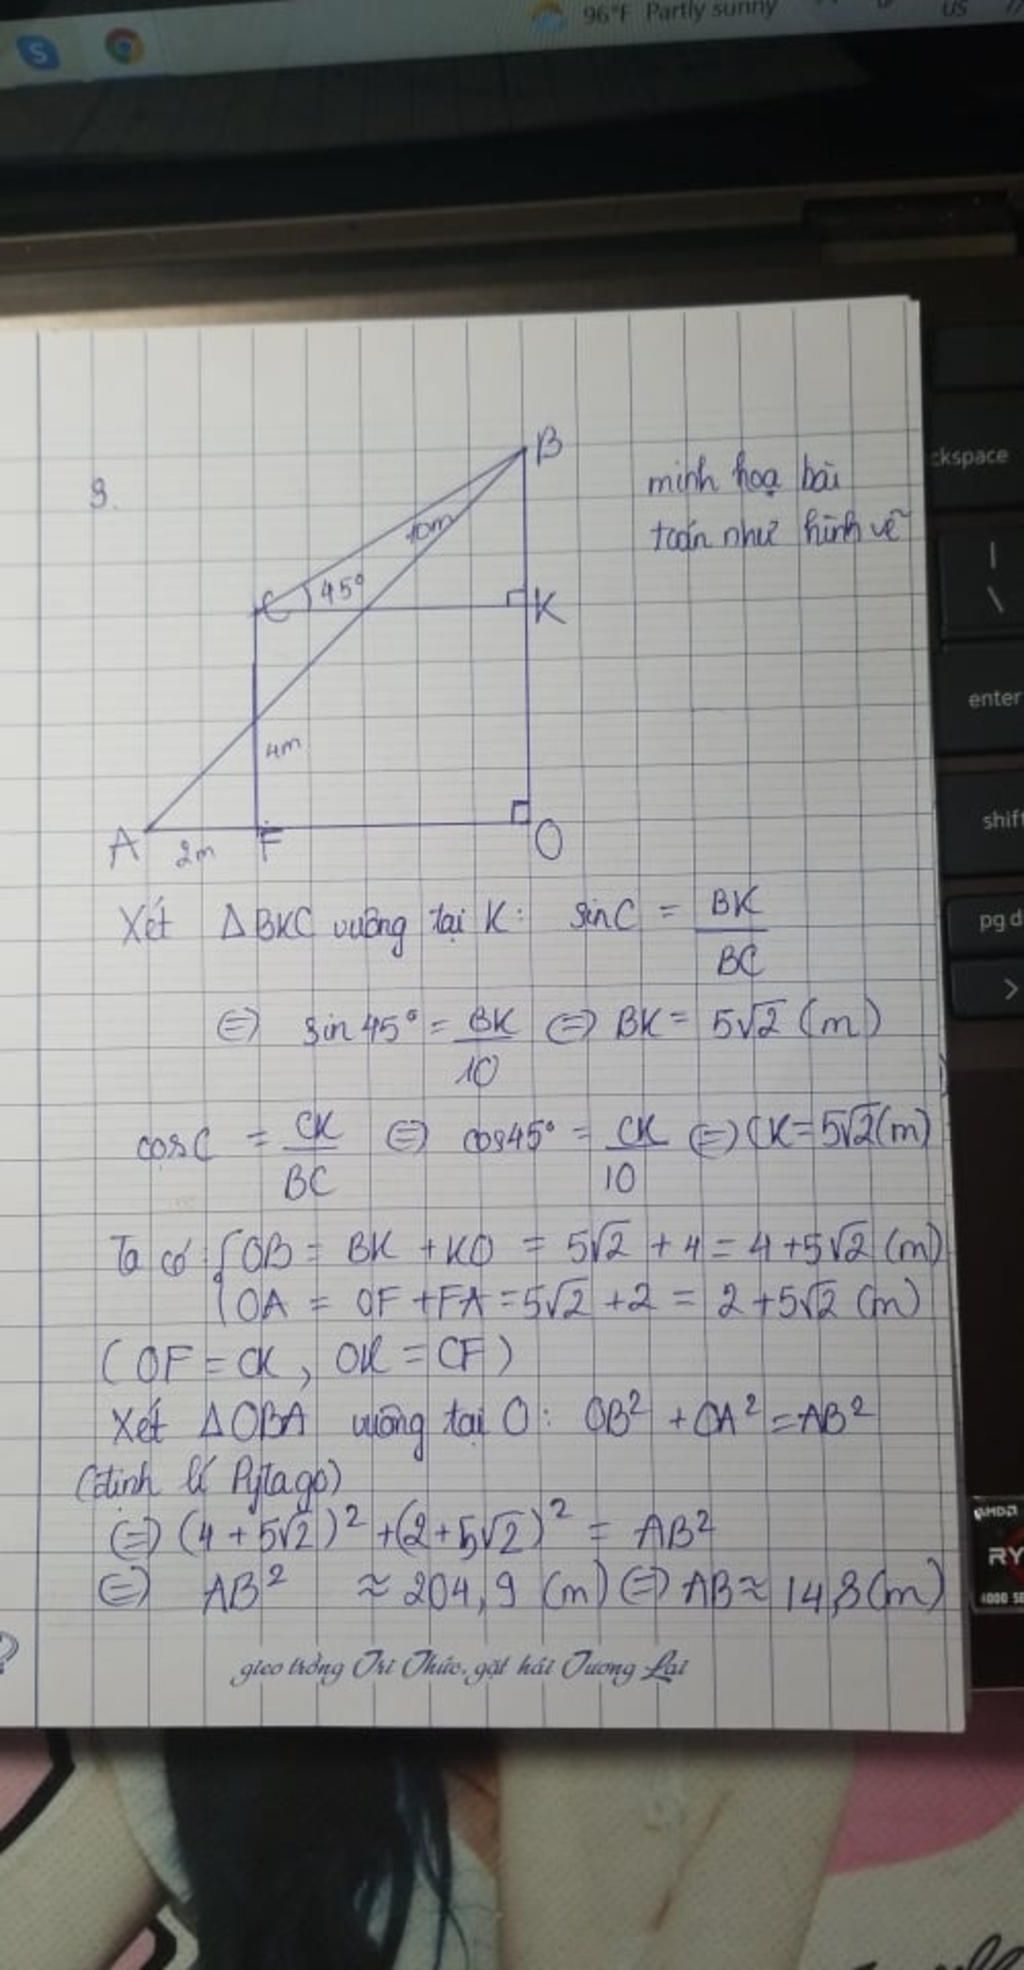 96°F Partly sunny
US
S
ckspace
|
\
enter
shift
pg d
>
AMDA
RY
4000 SE
9.
B
minh hoạ bài
toán như hình vẽ
10m
C 45°
K
4m
A 2m F O
Xét ΔBKC vuông tại K: sinC = BK/BC
⇔ sin45° = BK/10 ⇔ BK = 5√2 (m)
cosC = CK/BC ⇔ cos45° = CK/10 ⇔ CK = 5√2 (m)
Ta có { OB = BK + KO = 5√2 + 4 = 4 + 5√2 (m)
OA = OF + FA = 5√2 + 2 = 2 + 5√2 (m)
(OF = CK, OK = CF)
Xét ΔOBA vuông tại O: OB² + OA² = AB²
(định lí Pytago)
⇔ (4 + 5√2)² + (2 + 5√2)² = AB²
⇔ AB² ≈ 204,9 (m) ⇔ AB ≈ 14,3 (m)
gieo trồng Tri Thức, gặt hái Tương Lai